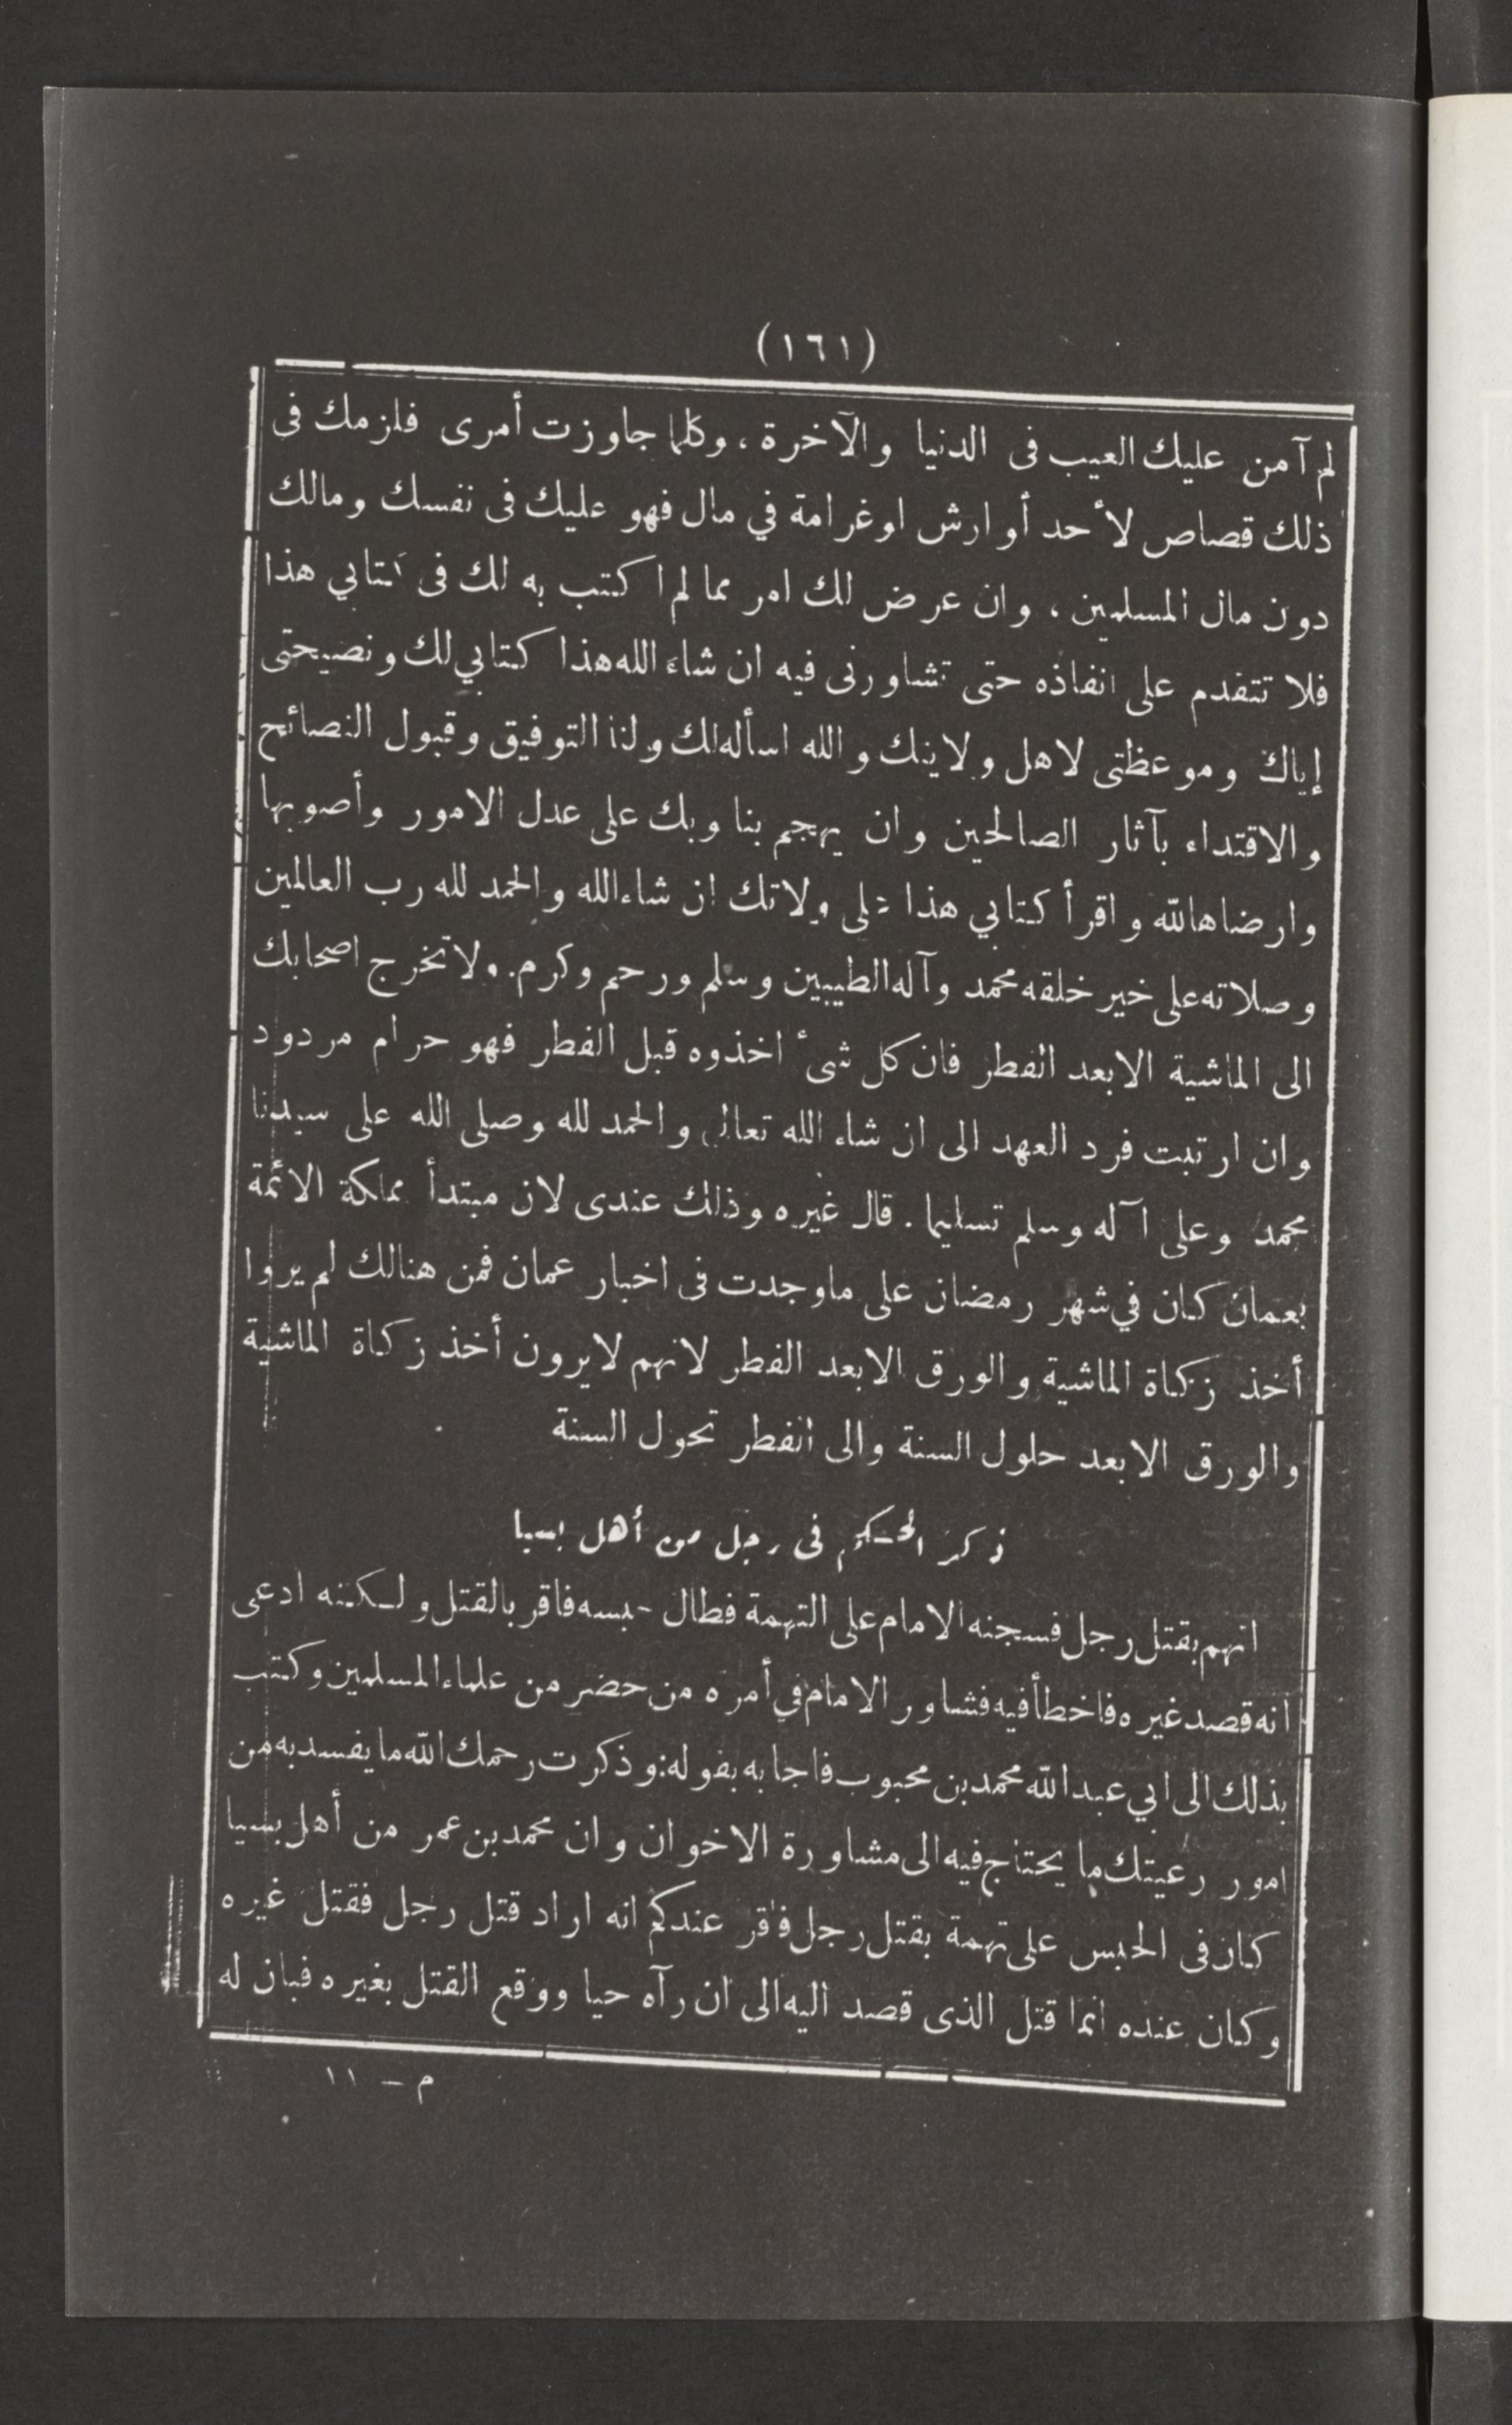 (١٦١)
لم آمن عليك العيب فى الدنيا والآخرة ، وكلما جاوزت أمرى فلزمك فى
ذلك قصاص لأحد أو ارش او غرامة في مال فهو عليك فى نفسك ومالك
دون مال المسلمين ، وان عرض لك امر مما لم اكتب به لك فى كتابي هذا
فلا تتقدم على انفاذه حتى تشاورنى فيه ان شاء الله هذا كتابي لك ونصيحتى
إياك وموعظتى لاهل ولايتك والله اسأله لك ولنا التوفيق وقبول النصائح
والاقتداء بآثار الصالحين وان يهجم بنا وبك على عدل الامور وأصوبها
وارضاها لله واقرأ كتابي هذا على ولاتك ان شاء الله والحمد لله رب العالمين
وصلاته على خير خلقه محمد وآله الطيبين وسلم ورحم وكرم. ولا تخرج اصحابك
الى الماشية الا بعد الفطر فان كل شىء اخذوه قبل الفطر فهو حرام مردود
وان ارتبت فرد العهد الى ان شاء الله تعالى والحمد لله وصلى الله على سيدنا
محمد وعلى آله وسلم تسليما . قال غيره وذلك عندى لان مبتدأ مملكة الائمة
بعمان كان في شهر رمضان على ماوجدت فى اخبار عمان فمن هنالك لم يروا
أخذ زكاة الماشية والورق الا بعد الفطر لانهم لا يرون أخذ زكاة الماشية
والورق الا بعد حلول السنة والى الفطر تحول السنة
ذكر الحكم فى رجل من أهل بسيا
اتهم بقتل رجل فسجنه الامام على التهمة فطال حبسه فاقر بالقتل ولكنه ادعى
انه قصد غيره فاخطأ فيه فشاور الامام في أمره من حضر من علماء المسلمين وكتب
بذلك الى ابي عبد الله محمد بن محبوب فاجابه بقوله: وذكرت رحمك الله ما يفسد به من
امور رعيتك ما يحتاج فيه الى مشاورة الاخوان وان محمد بن عمر من أهل بسيا
كان فى الحبس على تهمة بقتل رجل فاقر عندكم انه اراد قتل رجل فقتل غيره
وكان عنده انما قتل الذى قصد اليه الى ان رآه حيا ووقع القتل بغيره فبان له
م – ١١